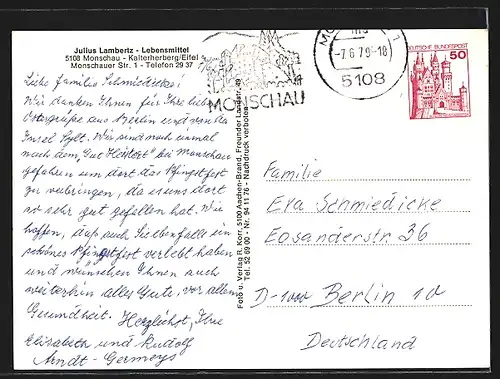 Julius Lambertz - Lebensmittel
5108 Monschau - Kalterherberg/Eifel
Monschauer Str. 1 - Telefon 29 37
MONSCHAU
-7.6.79-18
5108
DEUTSCHE BUNDESPOST
50
Liebe Familie Schmiedicke!
Wir danken Ihnen für Ihre lieben
Ostergrüße aus Berlin und von der
Insel Sylt. Wir sind noch einmal
nach dem "Gut Heistert" bei Monschau
gefahren um dort das Pfingstfest
zu verbringen, da es uns dort
so sehr gut gefallen hat. Wir
hoffen, daß auch Sie ebenfalls ein
schönes Pfingstfest verlebt haben
und wünschen Ihnen auch
weiterhin alles Gute, vor allem
Gesundheit. Herzlichst, Ihre
Elisabeth und Rudolf
Arndt-Germerys
Foto u. Verlag R. Korr, 5100 Aachen-Brand, Freunder Landstr.
Tel. 52 69 00 - Nr. 94 11 76 - Nachdruck verboten
Familie
Eva Schmiedicke
Eosanderstr. 36
D-1000 Berlin 10
Deutschland